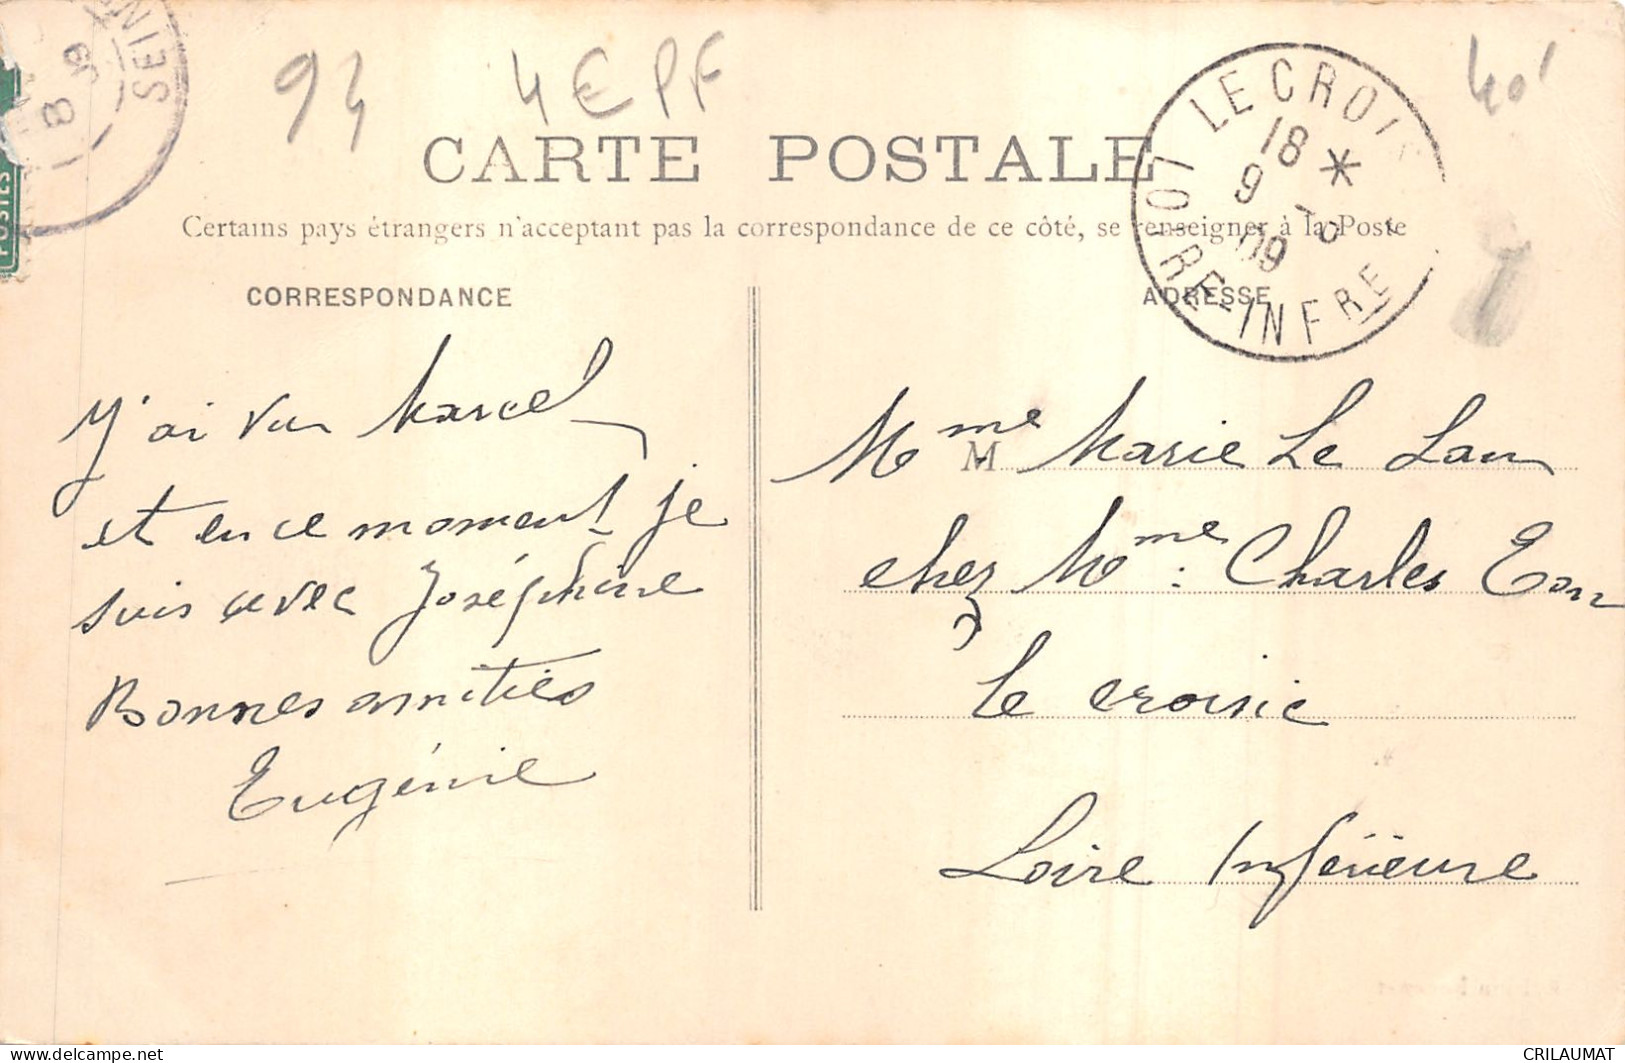 94
4€ PF
40'
SEINE
8
09
POSTES
CARTE POSTALE
Certains pays étrangers n'acceptant pas la correspondance de ce côté, se renseigner à la Poste
LE CROI
18 *
9 -8
09
LOIRE INFRE
CORRESPONDANCE
J'ai vu Marcel
et en ce moment je
suis avec Joséphine
Bonnes amitiés
Eugénie
ADRESSE
M
Mme Marie Le Lan
chez Mme Charles Eon
Le Croisic
Loire Inférieure
delcampe.net
CRILAUMAT